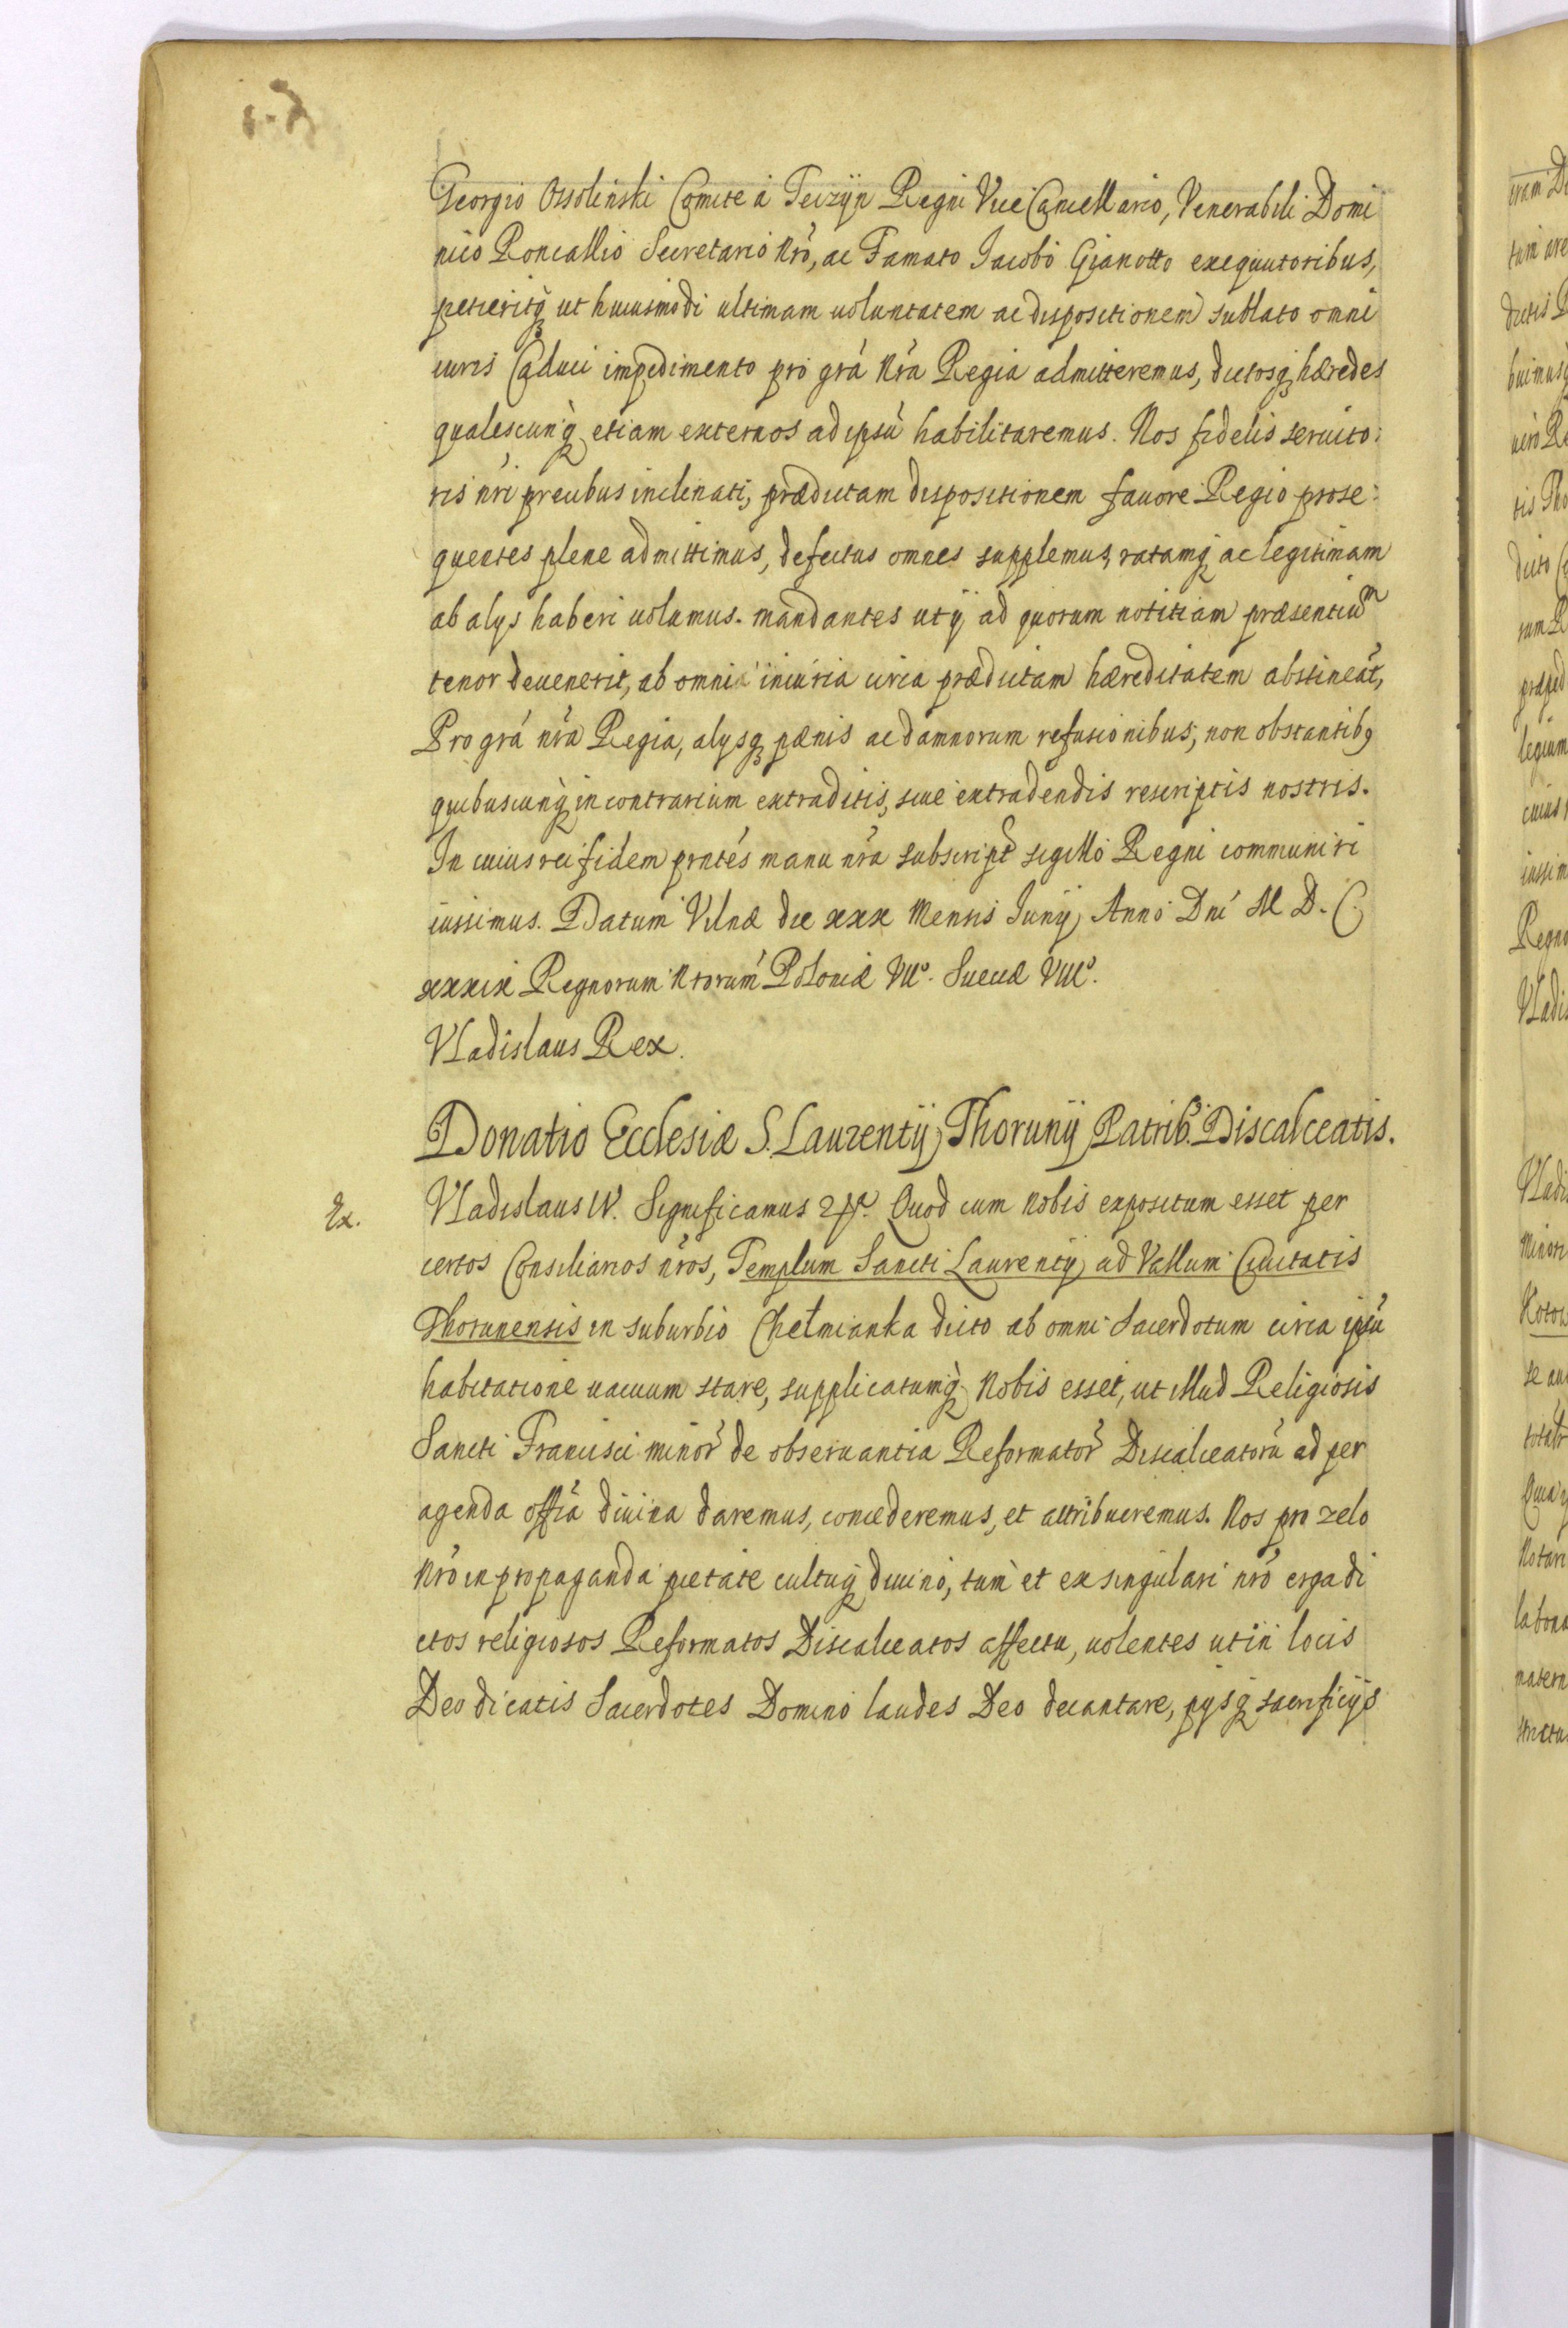 Georgio Ossolinski Comite á Teizÿn Regni ViceCancellario, Venerabili Domi
nico Roncallio Secretario Nrō, ac Famato Iacobo Gianotto exequutoribus,
petieritq́ ut huiusmodi ultimam uoluntatem ac dispositionem sublato omni
iuris Caduci impedimento pro grā Nrā Regia admitteremus, dictosq́ hæredes
qualescunq́ etiam externos ad ipsū habilitaremus. Nos fidelis seruito:
ris nrī precibus inclinati, prædictam dispositionem fauore Regio prose:
quentes plene admittimus, defectus omnes supplemus, ratamq́ ac legitimam
ab alys haberi uolumus. mandantes ut ÿ, ad quorum notitiam præsentium
tenor deuenerit, ab omni iniuria circa prædictam hæreditatem abstineāt,
Pro grā nrā Regia, alysq́ pænis ac damnorum refusionibus, non obstantibꝰ
quibuscunq́ in contrarium extraditis, siue extradendis rescriptis nostris.
In cuius rei fidem prntēs manu nrā subscript sigillo Regni communiri
iussimus. Datum Vilnæ die xxx Mensis Iunÿ Anno Dnī M D. C.
xxxix Regnorum Nrorum Poloniæ VIIº. Sueciæ VIIIº.
Vladislaus Rex.
Donatio Ecclesiæ S. Laurentÿ Thorunÿ Patribꝰ. Discalceatis.
Ex. Vladislaus IV. Significamus ꝛc. Quod cum Nobis expositum esset per
certos Consiliarios nrōs, Templum Sancti Laurentÿ ad Vallum Ciuitatis
Thorunensis in suburbio Chełmianka dicto ab omni Sacerdotum circa ipsū
habitatione uacuum stare, supplicatumq́ Nobis esset, ut illud Religiosis
Sancti Francisci minor̄ de obseruantia Reformator̄ Discalceatorū ad per
agenda offīa diuina daremus, concederemus, et attribueremus. Nos pro zelo
Nrō in propaganda pietate cultuq́ diuino, tum et ex singulari nrō erga di
ctos religiosos Reformatos Discalceatos affectu, uolentes ut in locis
Deo dicatis Sacerdotes Domino laudes Deo decantare, pysq́ sacrificÿs